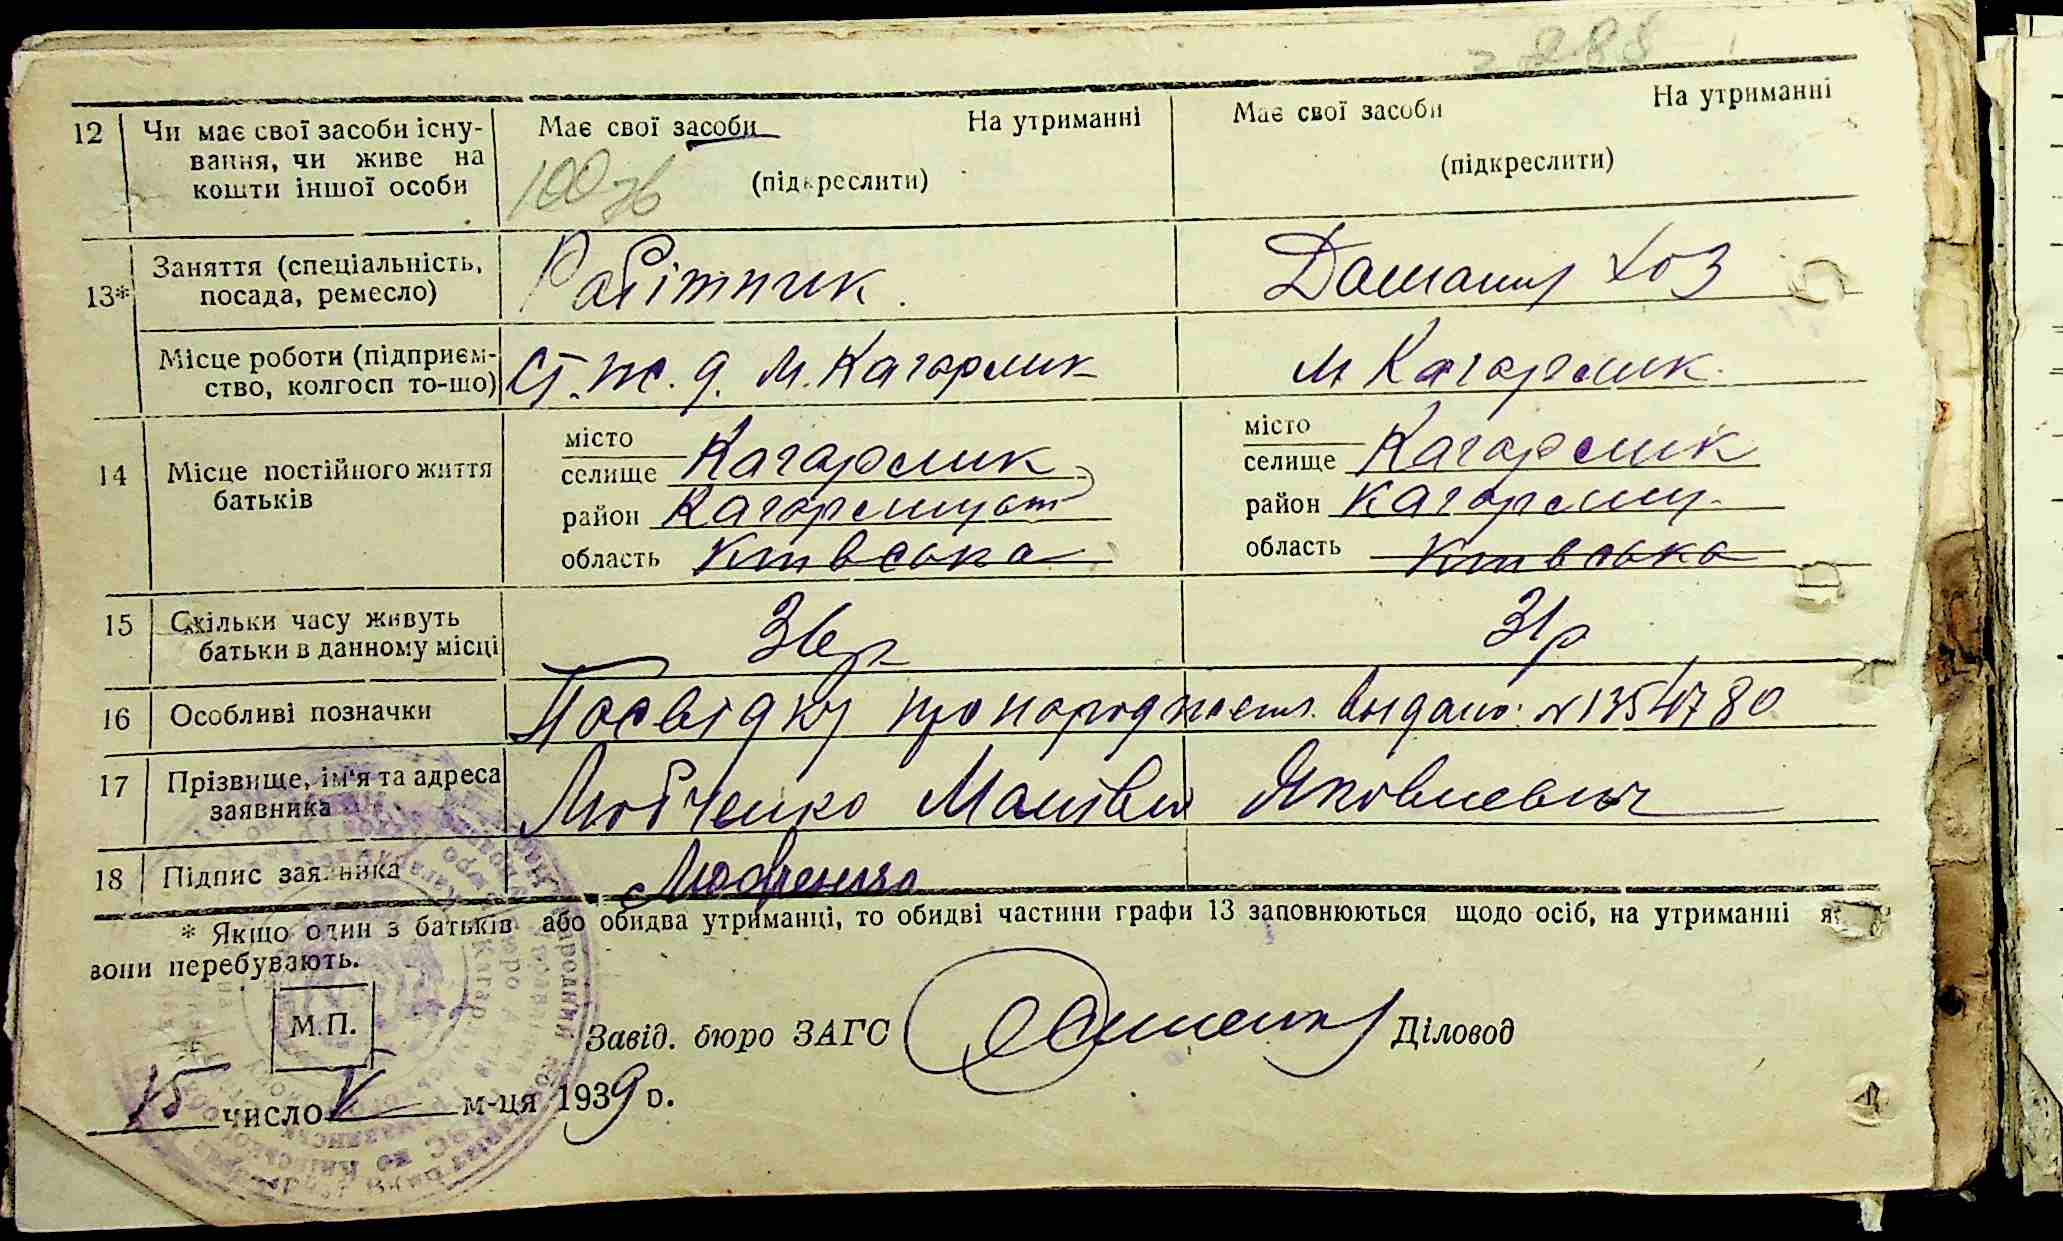 288
12 Чи має свої засоби існу- Має свої засоби На утриманні Має свої засоби На утриманні
вання, чи живе на (підкреслити) (підкреслити)
кошти іншої особи
13* Заняття (спеціальність, Робітник. Домашня хоз
посада, ремесло)
Місце роботи (підприєм- Ст. ж. д. м. Кагарлик м Кагарлик.
ство, колгосп то-що)
14 Місце постійного життя місто Кагарлик місто Кагарлик
батьків селище селище
район Кагарлицьк район Кагарлиц-
область Київська область Київська
15 Скільки часу живуть 36р 31р
батьки в данному місці
16 Особливі позначки Посвідку про народження. видано: №1354780
17 Прізвище, ім'я та адреса Любченко Матвій Яковлевич
заявника
18 Підпис заявника Любченко
* Якщо один з батьків або обидва утриманці, то обидві частини графи 13 заповнюються щодо осіб, на утриманні я
вони перебувають.
М.П.
Завід. бюро ЗАГС Діловод
15 число V м-ця 1939 р.